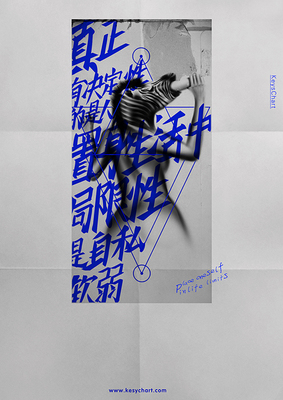 真正
自决定性
就是人
置身生活中
局限性
是自私
软弱
KeysChart
Place oneself
in life limits
www.kesychart.com